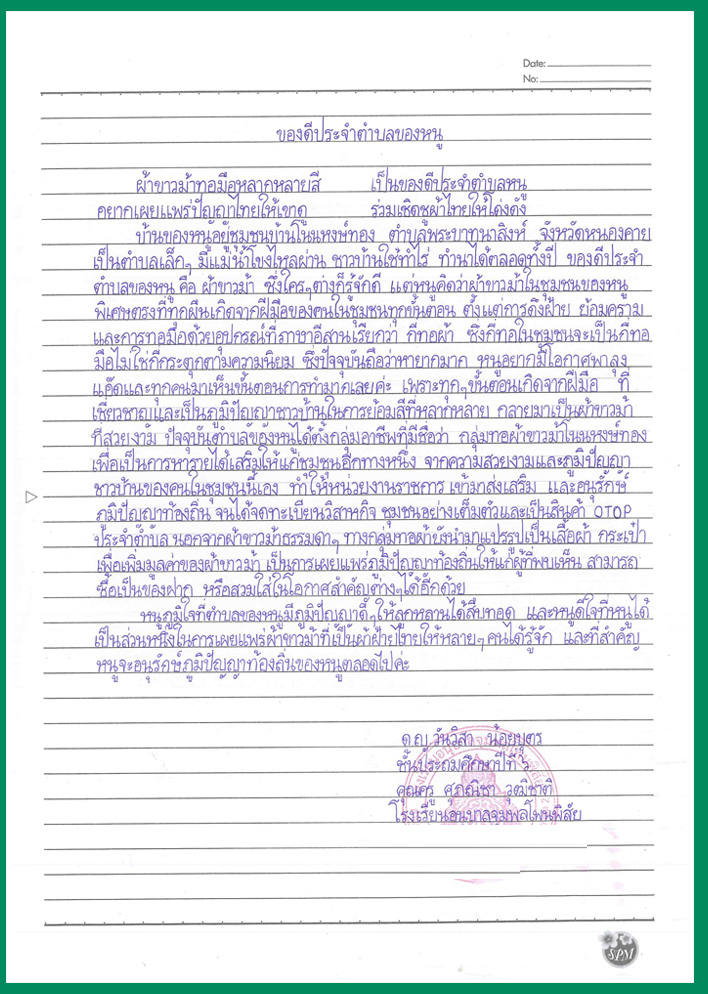 Date:
No:
ของดีประจำตำบลของหนู
ผ้าขาวม้าทอมือหลากหลายสี เป็นของดีประจำตำบลหนู
อยากเผยแพร่ปัญญาไทยให้เขาดู ร่วมเชิดชูผ้าไทยให้โด่งดัง
บ้านของหนูอยู่ชุมชนบ้านโนนหงษ์ทอง ตำบลพระบาทนาสิงห์ จังหวัดหนองคาย
เป็นตำบลเล็กๆ มีแม่น้ำโขงไหลผ่าน ชาวบ้านใช้ทำไร่ ทำนาได้ตลอดทั้งปี ของดีประจำ
ตำบลของหนู คือ ผ้าขาวม้า ซึ่งใครๆต่างก็รู้จักดี แต่หนูคิดว่าผ้าขาวม้าในชุมชนของหนู
พิเศษตรงที่ทุกผืนเกิดจากฝีมือของคนในชุมชนทุกขั้นตอน ตั้งแต่การดึงฝ้าย ย้อมคราม
และการทอมือด้วยอุปกรณ์ที่ภาษาอีสานเรียกว่า กี่ทอผ้า ซึ่งกี่ทอในชุมชนจะเป็นกี่ทอ
มือไม่ใช่กี่กระตุกตามความนิยม ซึ่งปัจจุบันถือว่าหายากมาก หนูอยากมีโอกาศพาลุง
แค๊ดและทุกคนมาเห็นขั้นตอนการทำมากเลยค่ะ เพราะทุกๆขั้นตอนเกิดจากฝีมือ ที่
เชี่ยวชาญและเป็นภูมิปัญญาชาวบ้านในการย้อมสีที่หลากหลาย กลายมาเป็นผ้าขาวม้า
ที่สวยงาม ปัจจุบันตำบลของหนูได้ตั้งกลุ่มอาชีพที่มีชื่อว่า กลุ่มทอผ้าขาวม้าโนนหงษ์ทอง
เพื่อเป็นการหารายได้เสริมให้แก่ชุมชนอีกทางหนึ่ง จากความสวยงามและภูมิปัญญา
ชาวบ้านของคนในชุมชนนี้เอง ทำให้หน่วยงานราชการ เข้ามาส่งเสริม และอนุรักษ์
ภูมิปัญญาท้องถิ่น จนได้จดทะเบียนวิสาหกิจ ชุมชนอย่างเต็มตัวและเป็นสินค้า OTOP
ประจำตำบล นอกจากผ้าขาวม้าธรรมดาๆ ทางกลุ่มทอผ้ายังนำมาแปรรูปเป็นเสื้อผ้า กระเป๋า
เพื่อเพิ่มมูลค่าของผ้าขาวม้า เป็นการเผยแพร่ภูมิปัญญาท้องถิ่นให้แก่ผู้ที่พบเห็น สามารถ
ซื้อเป็นของฝาก หรือสวมใส่ในโอกาสสำคัญต่างๆได้อีกด้วย
หนูภูมิใจที่ตำบลของหนูมีภูมิปัญญาดีๆให้ลูกหลานได้สืบทอด และหนูดีใจที่หนูได้
เป็นส่วนหนึ่งในการเผยแพร่ผ้าขาวม้าที่เป็นผ้าฝ้ายไทยให้หลายๆคนได้รู้จัก และที่สำคัญ
หนูจะอนุรักษ์ภูมิปัญญาท้องถิ่นของหนูตลอดไปค่ะ
ด.ญ.วันวิสา น้อยบุตร
ชั้นประถมศึกษาปีที่ ๖
คุณครู ศุภณิชา วุฒิชาติ
โรงเรียนอนุบาลจุมพลโพนพิสัย
SPM